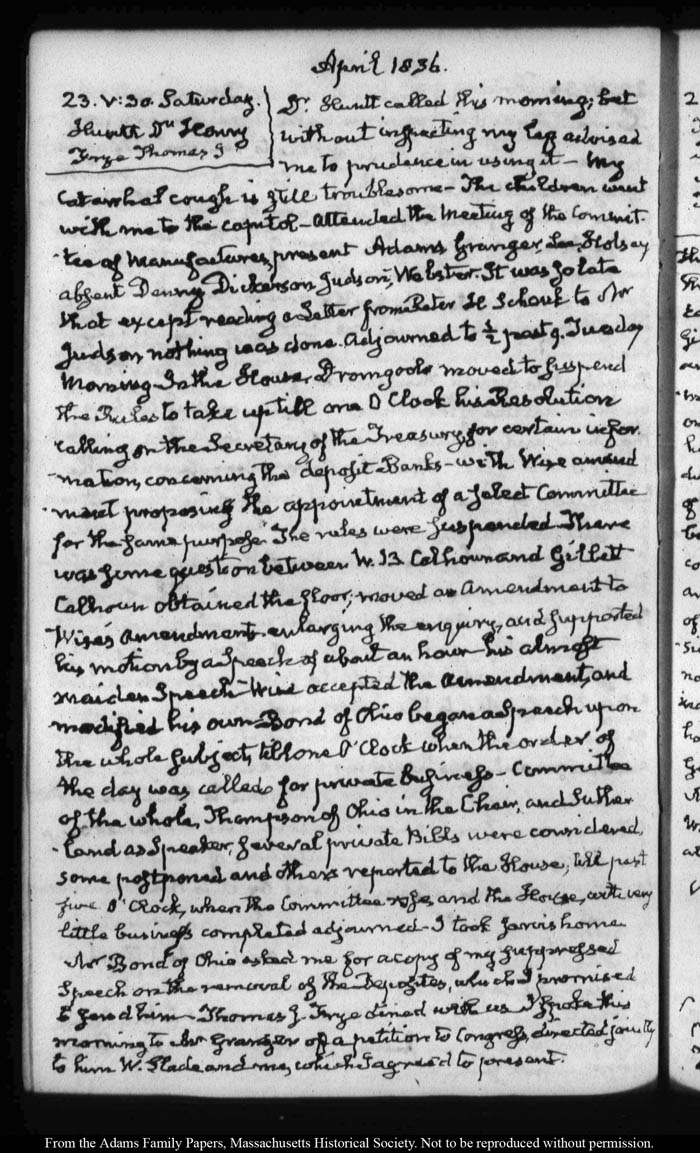 April 1836.
23. V:30. Saturday.
Huntt Dr. Henry
Frye Thomas J
Dr. Huntt called this morning; but
without inspecting my leg advised
me to prudence in using it – My
Catarrhal cough is still troublesome – The children went
with me to the capitol – attended the Meeting of the Commit-
-tee of Manufactures, present Adams Granger, Lee, Holsey
absent Denny Dickerson Judson, Webster. It was so late
that except reading a Letter from Peter H Schenk to Mr
Judson nothing was done. adjourned to ½ past 9. Tuesday
Morning – In the House, Dromgoole moved to suspend
the Rules to take up till one O Clock his Resolution
calling on the Secretary of the Treasury, for certain infor-
-mation, concerning the deposit-Banks – with Wise amend
-ment proposing the appointment of a select Committee
for the same purpose. The rules were suspended There
was some question between W. B Calhoun and Gillett
Calhoun obtained the floor; moved an Amendment to
Wise's Amendment enlarging the enquiry, and supported
his motion by a Speech of about an hour his almost
maiden Speech – Wise accepted the Amendment, and
modified his own – Bond of Ohio began a Speech upon
the whole subject, till one O'Clock when the order of
the day was called for private business – Committee
of the whole, Thompson of Ohio in the Chair, and Suther
-land as Speaker, several private Bills were considered,
some postponed and others reported to the House, till past
five O'Clock, when the Committee rose, and the House, with very
little business completed adjourned – I took Jarvis home
Mr Bond of Ohio asked me for a copy of my suppressed
Speech on the removal of the Deposites, which I promised
to send him – Thomas J. Frye dined with us I spoke this
morning to Mr Granger of a petition to Congress, directed jointly
to him W. Slade and me, which I agreed to present.
From the Adams Family Papers, Massachusetts Historical Society. Not to be reproduced without permission.